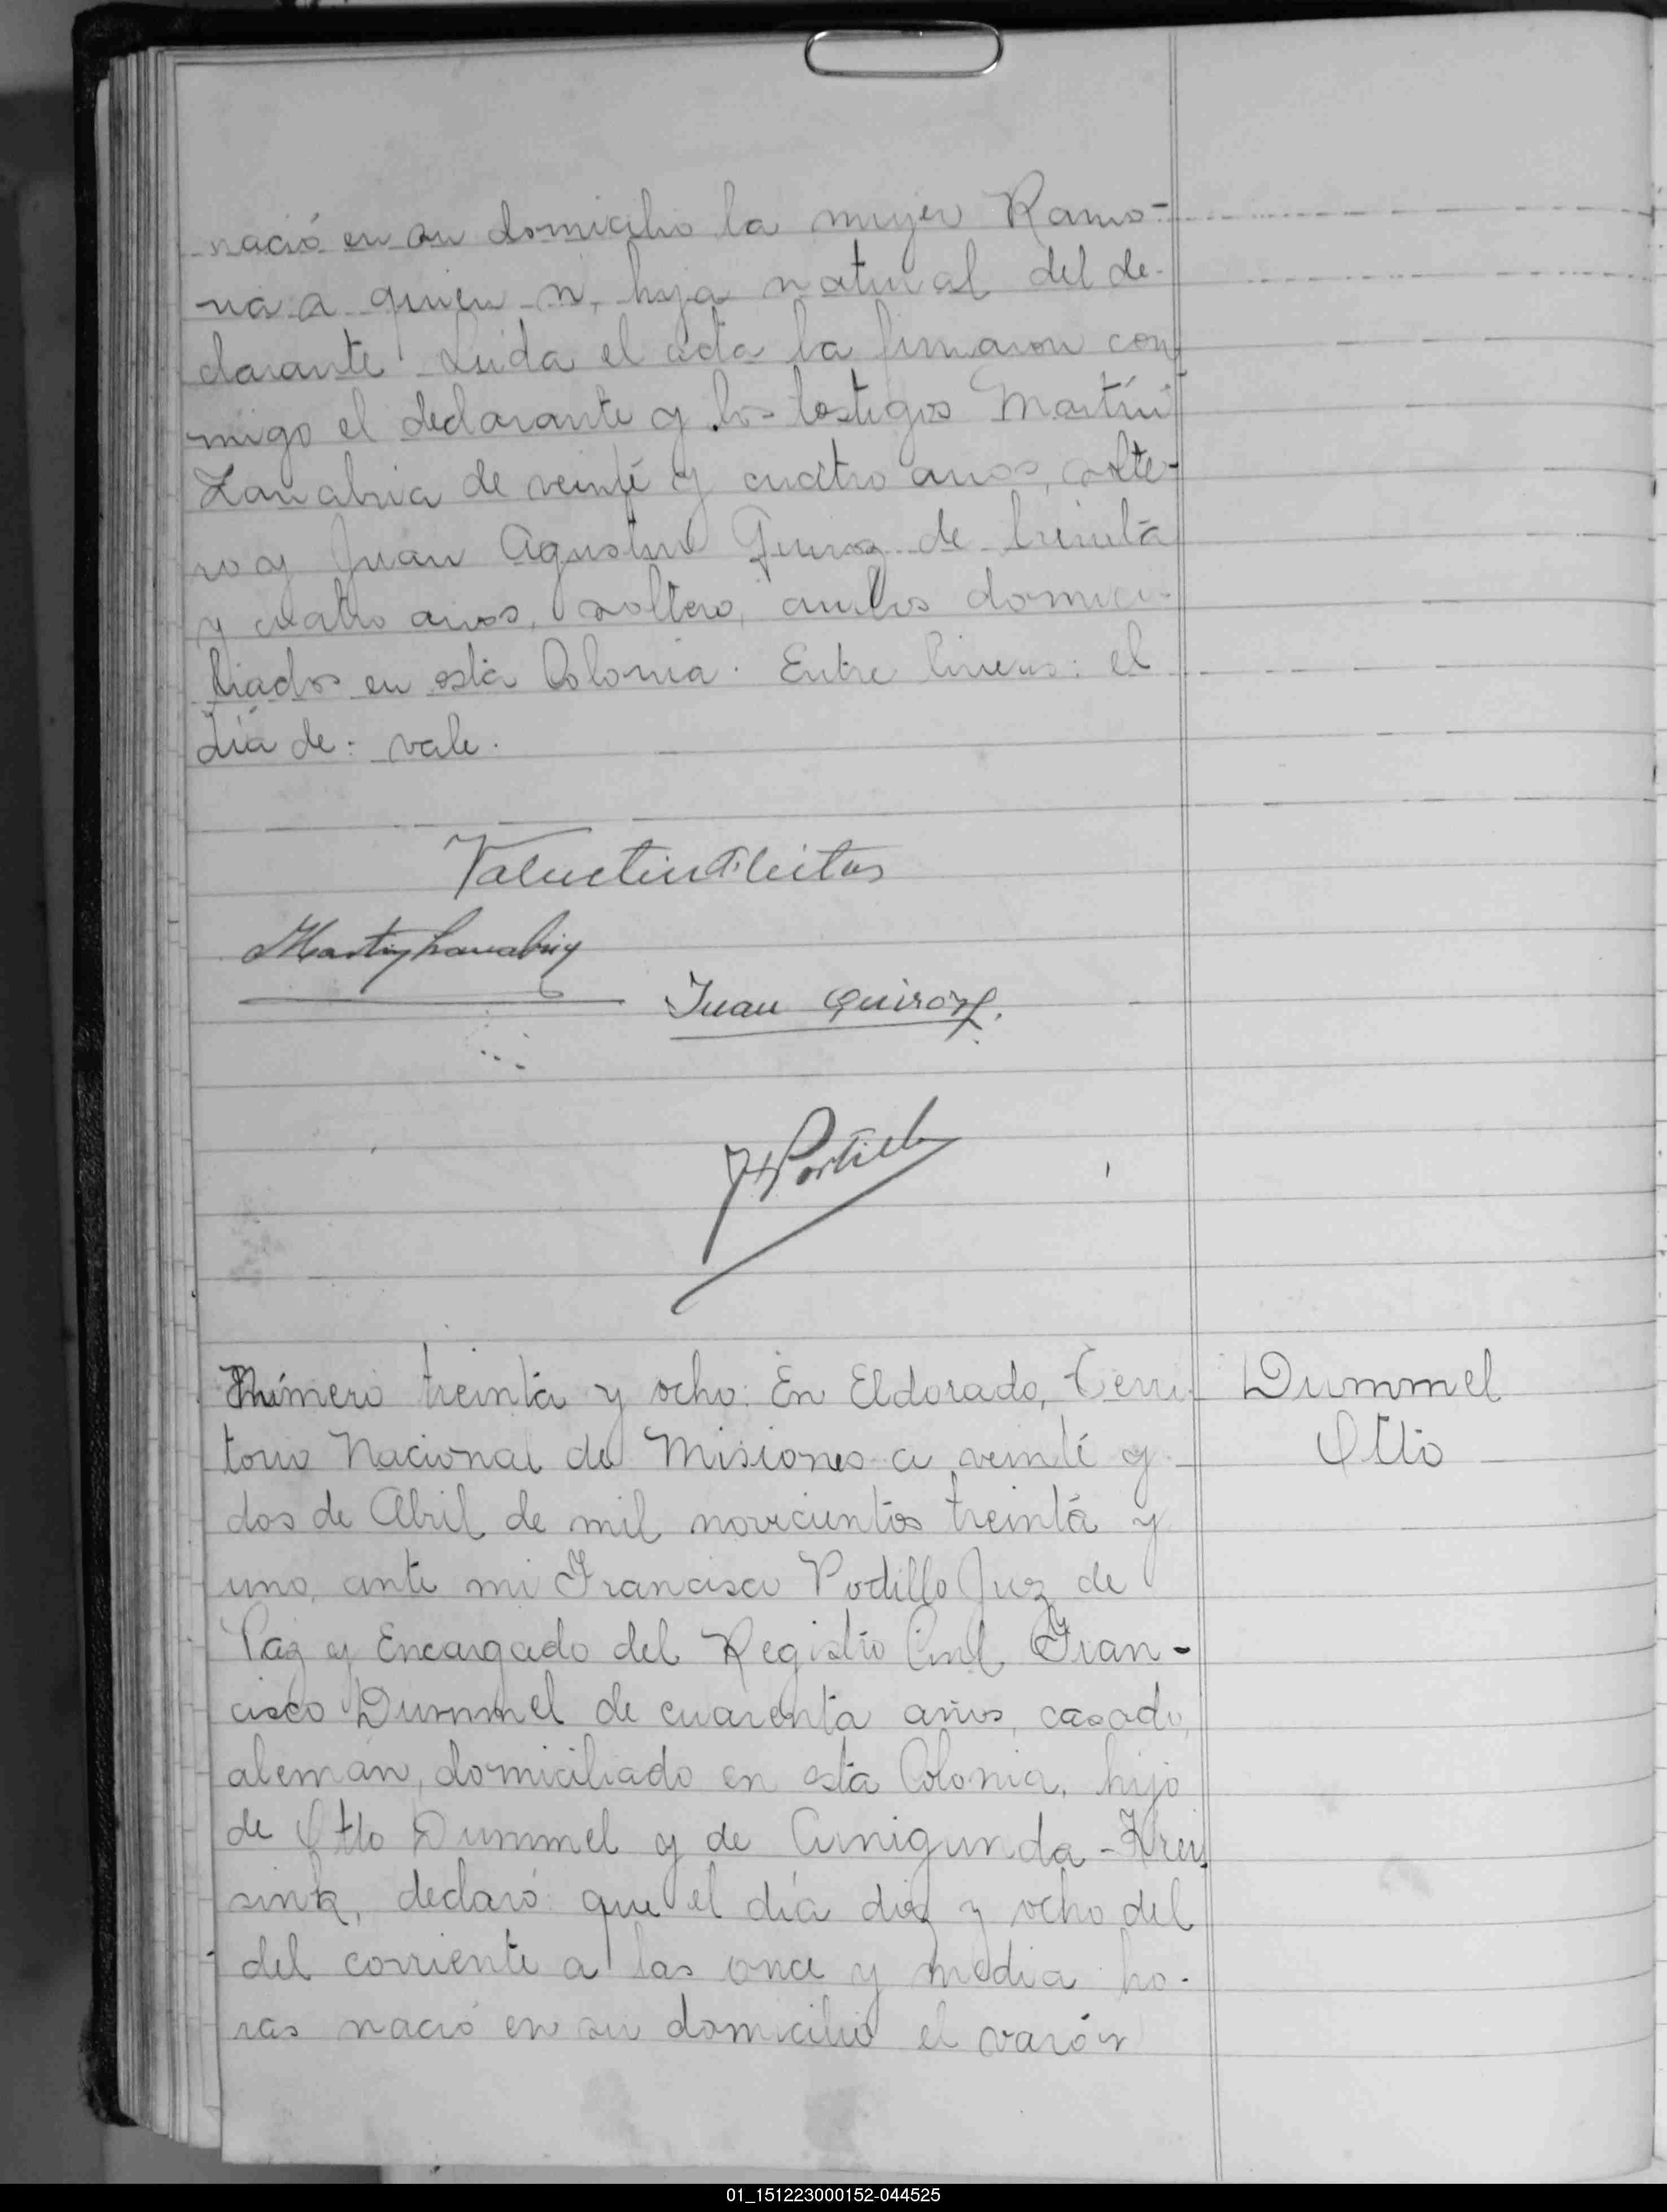 nació en su domicilio la mujer Ramo-
na a quien vi, hija natural del de-
clarante. Leida el acta la firmaron con
migo el declarante y los testigos Martín
Zanabria de veinte y cuatro anos, solte-
ro y Juan Agustin Quiroz de treinta
y cuatro anos, soltero, ambos domici-
liados en esta Colonia. Entre lineas: el
día de: vale.
Valentin Fleitas
Martin Zanabria
Juan Quiroz.
Número treinta y ocho: En Eldorado, Terri-
Dummel
torio Nacional de Misiones a veinte y
Otto
dos de Abril de mil novecientos treinta y
uno, ante mi Francisco Portillo Juez de
Paz y Encargado del Registro Civil Fran-
cisco Dummel de cuarenta años, casado,
alemán, domiciliado en esta Colonia, hijo
de Otto Dummel y de Cunigunda
declaró: que el día diez y ocho del
del corriente a las once y media ho-
ras nació en su domicilio el varón
01_151223000152-044525